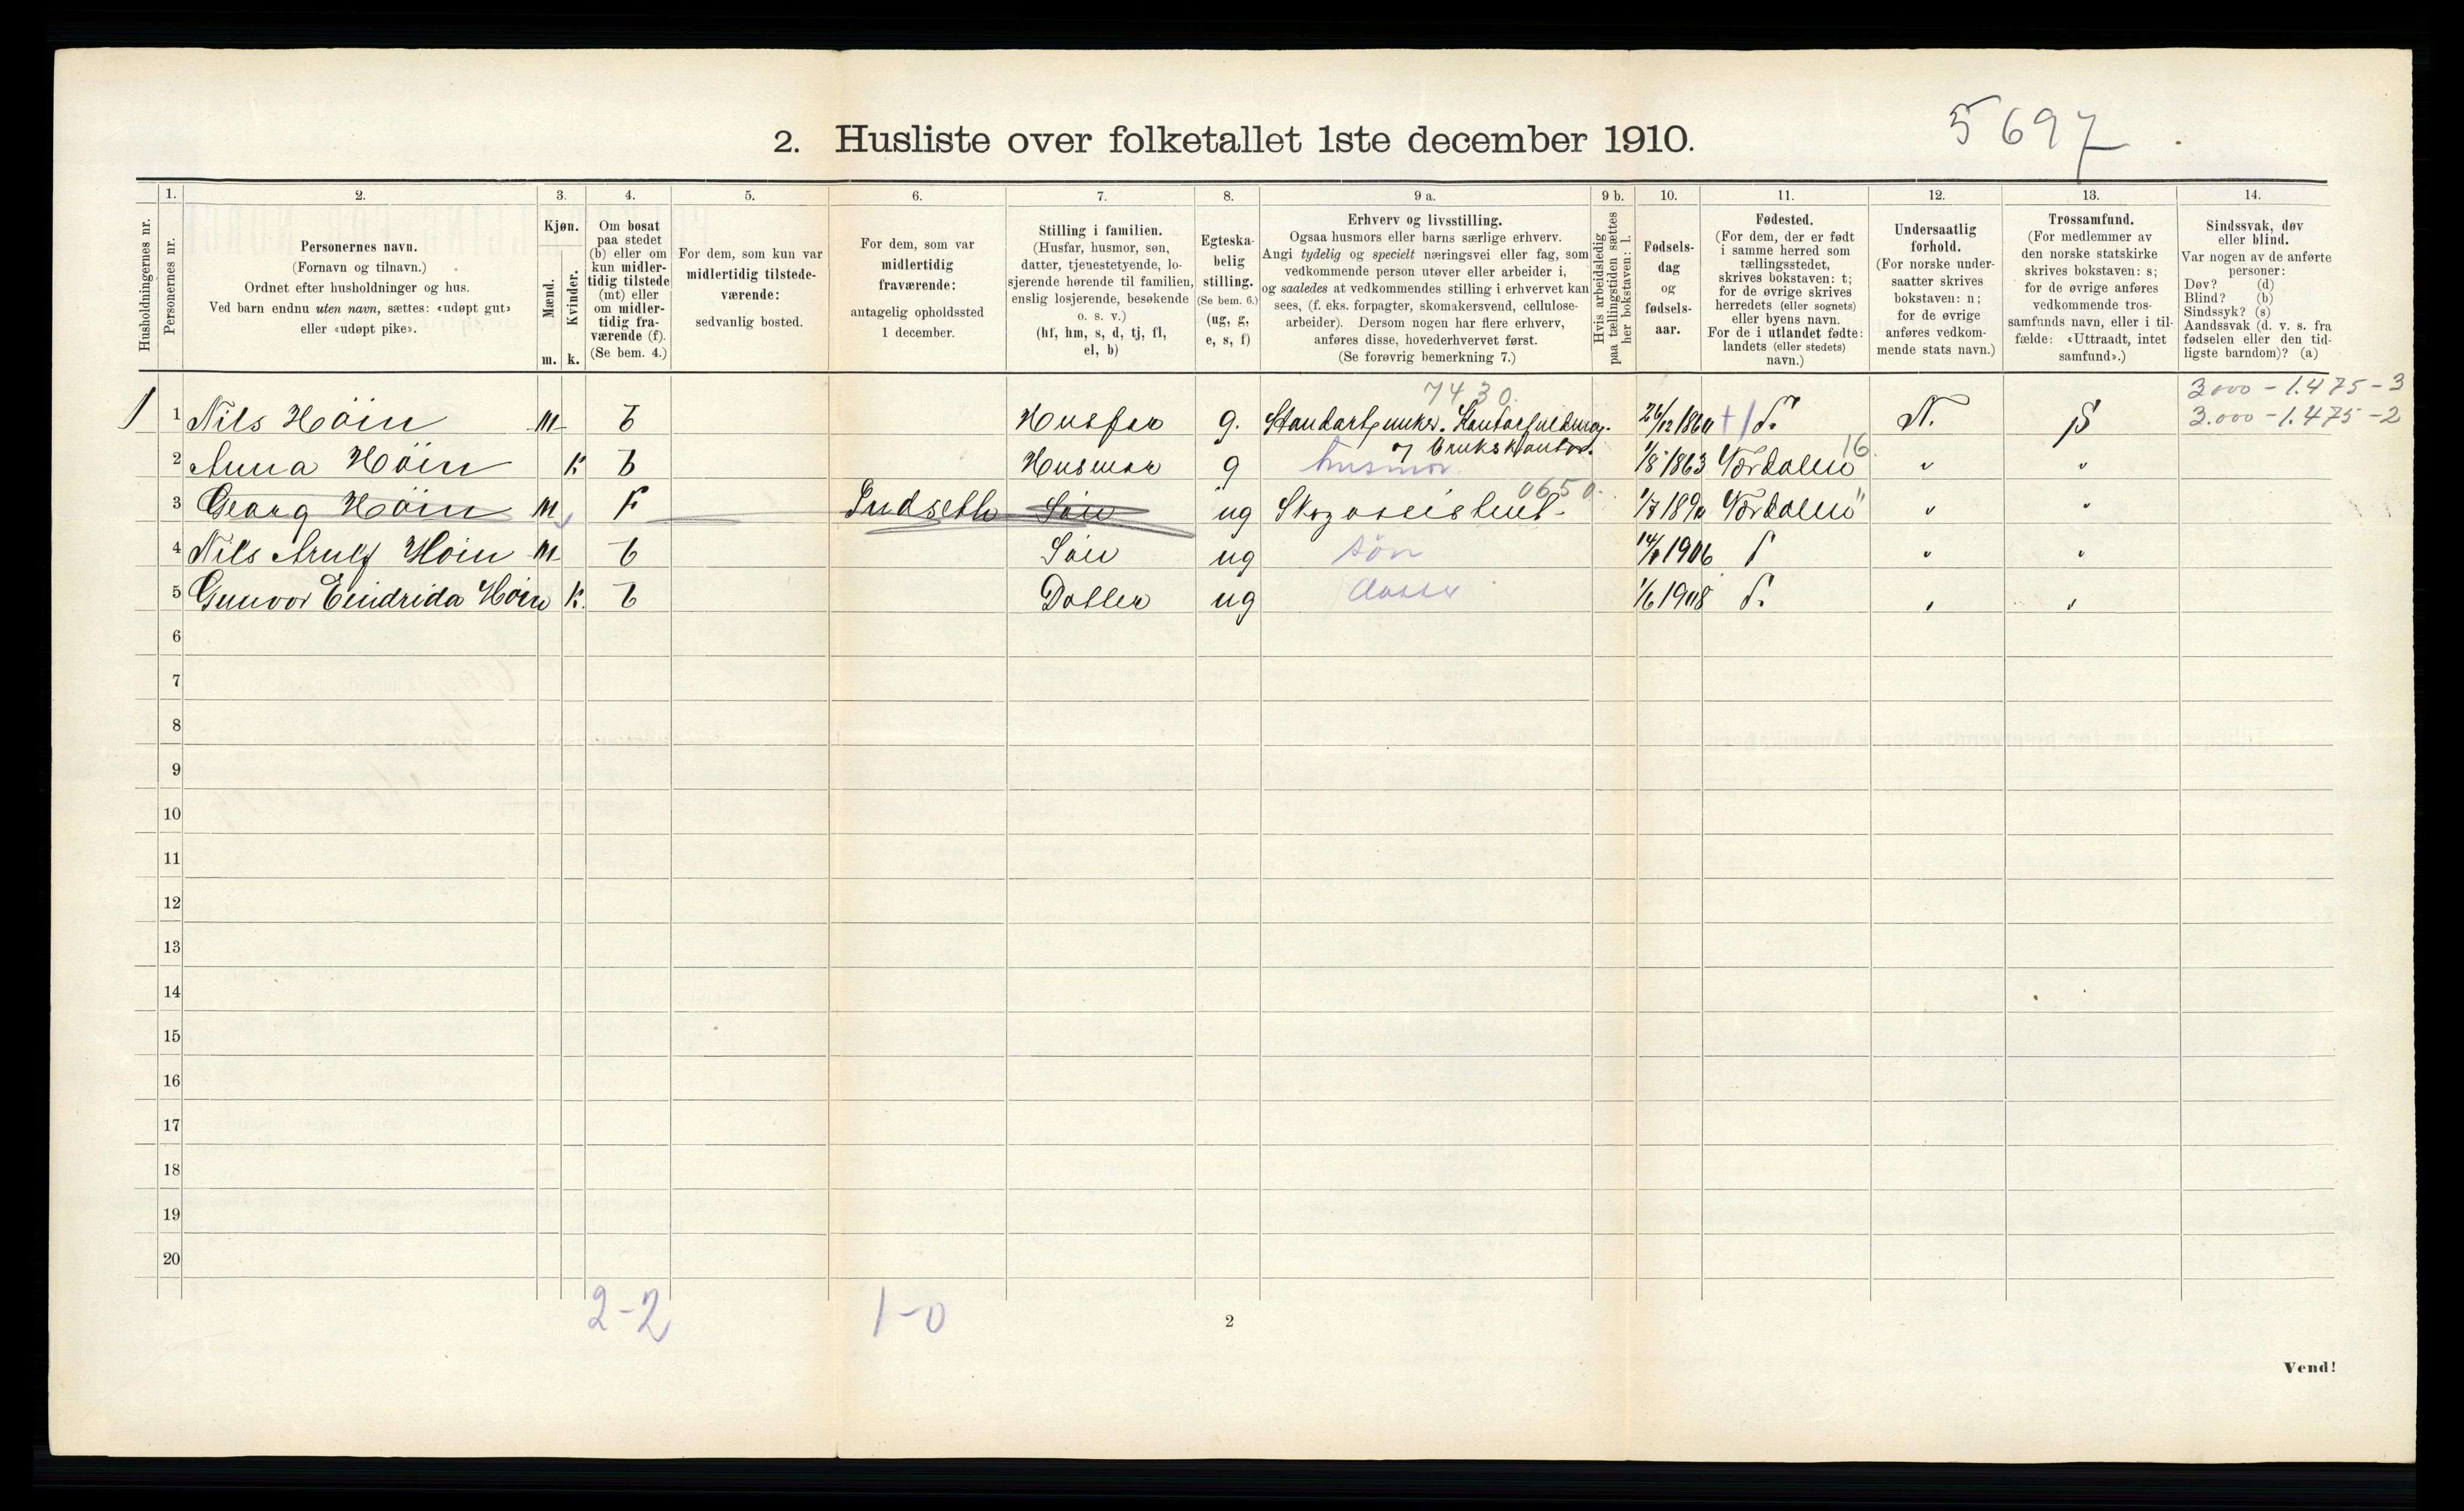 5697
2. Husliste over folketallet 1ste december 1910.
Husholdningernes nr.
1.
Personernes nr.
2.
Personernes navn.
(Fornavn og tilnavn.)
Ordnet efter husholdninger og hus.
Ved barn endnu uten navn, sættes: «udøpt gut»
eller «udøpt pike».
3.
Kjøn.
Mænd.
Kvinder.
m. k.
4.
Om bosat
paa stedet
(b) eller om
kun midler-
tidig tilstede
(mt) eller
om midler-
tidig fra-
værende (f).
(Se bem. 4.)
5.
For dem, som kun var
midlertidig tilstede-
værende:
sedvanlig bosted.
6.
For dem, som var
midlertidig
fraværende:
antagelig opholdssted
1 december.
7.
Stilling i familien.
(Husfar, husmor, søn,
datter, tjenestetyende, lo-
sjerende hørende til familien,
enslig losjerende, besøkende
o. s. v.)
(hf, hm, s, d, tj, fl,
el, b)
8.
Egteska-
belig
stilling.
(Se bem. 6.)
(ug, g,
e, s, f)
9 a.
Erhverv og livsstilling.
Ogsaa husmors eller barns særlige erhverv.
Angi tydelig og specielt næringsvei eller fag, som
vedkommende person utøver eller arbeider i,
og saaledes at vedkommendes stilling i erhvervet kan
sees, (f. eks. forpagter, skomakersvend, cellulose-
arbeider). Dersom nogen har flere erhverv,
anføres disse, hovederhvervet først.
(Se forøvrig bemerkning 7.)
9 b.
Hvis arbeidsledig
paa tællingstiden sættes
her bokstaven: l.
10.
Fødsels-
dag
og
fødsels-
aar.
11.
Fødested.
(For dem, der er født
i samme herred som
tællingsstedet,
skrives bokstaven: t;
for de øvrige skrives
herredets (eller sognets)
eller byens navn.
For de i utlandet fødte:
landets (eller stedets)
navn.)
12.
Undersaatlig
forhold.
(For norske under-
saatter skrives
bokstaven: n;
for de øvrige
anføres vedkom-
mende stats navn.)
13.
Trossamfund.
(For medlemmer av
den norske statskirke
skrives bokstaven: s;
for de øvrige anføres
vedkommende tros-
samfunds navn, eller i til-
fælde: «Uttraadt, intet
samfund».)
14.
Sindssvak, døv
eller blind.
Var nogen av de anførte
personer:
Døv? (d)
Blind? (b)
Sindssyk? (s)
Aandssvak (d. v. s. fra
fødselen eller den tid-
ligste barndom)? (a)
7430. 3000 - 1.475 - 3
1 1 Nils Höin m b Husfar g. 26/12 1860 + / T. N. S 3.000 - 1.475 - 2
og Brukskontor. 16.
2 Anna Höin k b Husmor g husmor 1/8 1863 Værdalen " "
0650.
3 Georg Höin m F Indseth Sön ug Skogassistent 1/7 1890 Værdalen " "
4 Nils Arulf Höin m b Sön ug sön 1906 T " "
5 Gunvor Eindrida Höin k. b Datter ug datter 1/6 1908 T. " "
6
7
8
9
10
11
12
13
14
15
16
17
18
19
20
2-2 1-0
2
Vend!